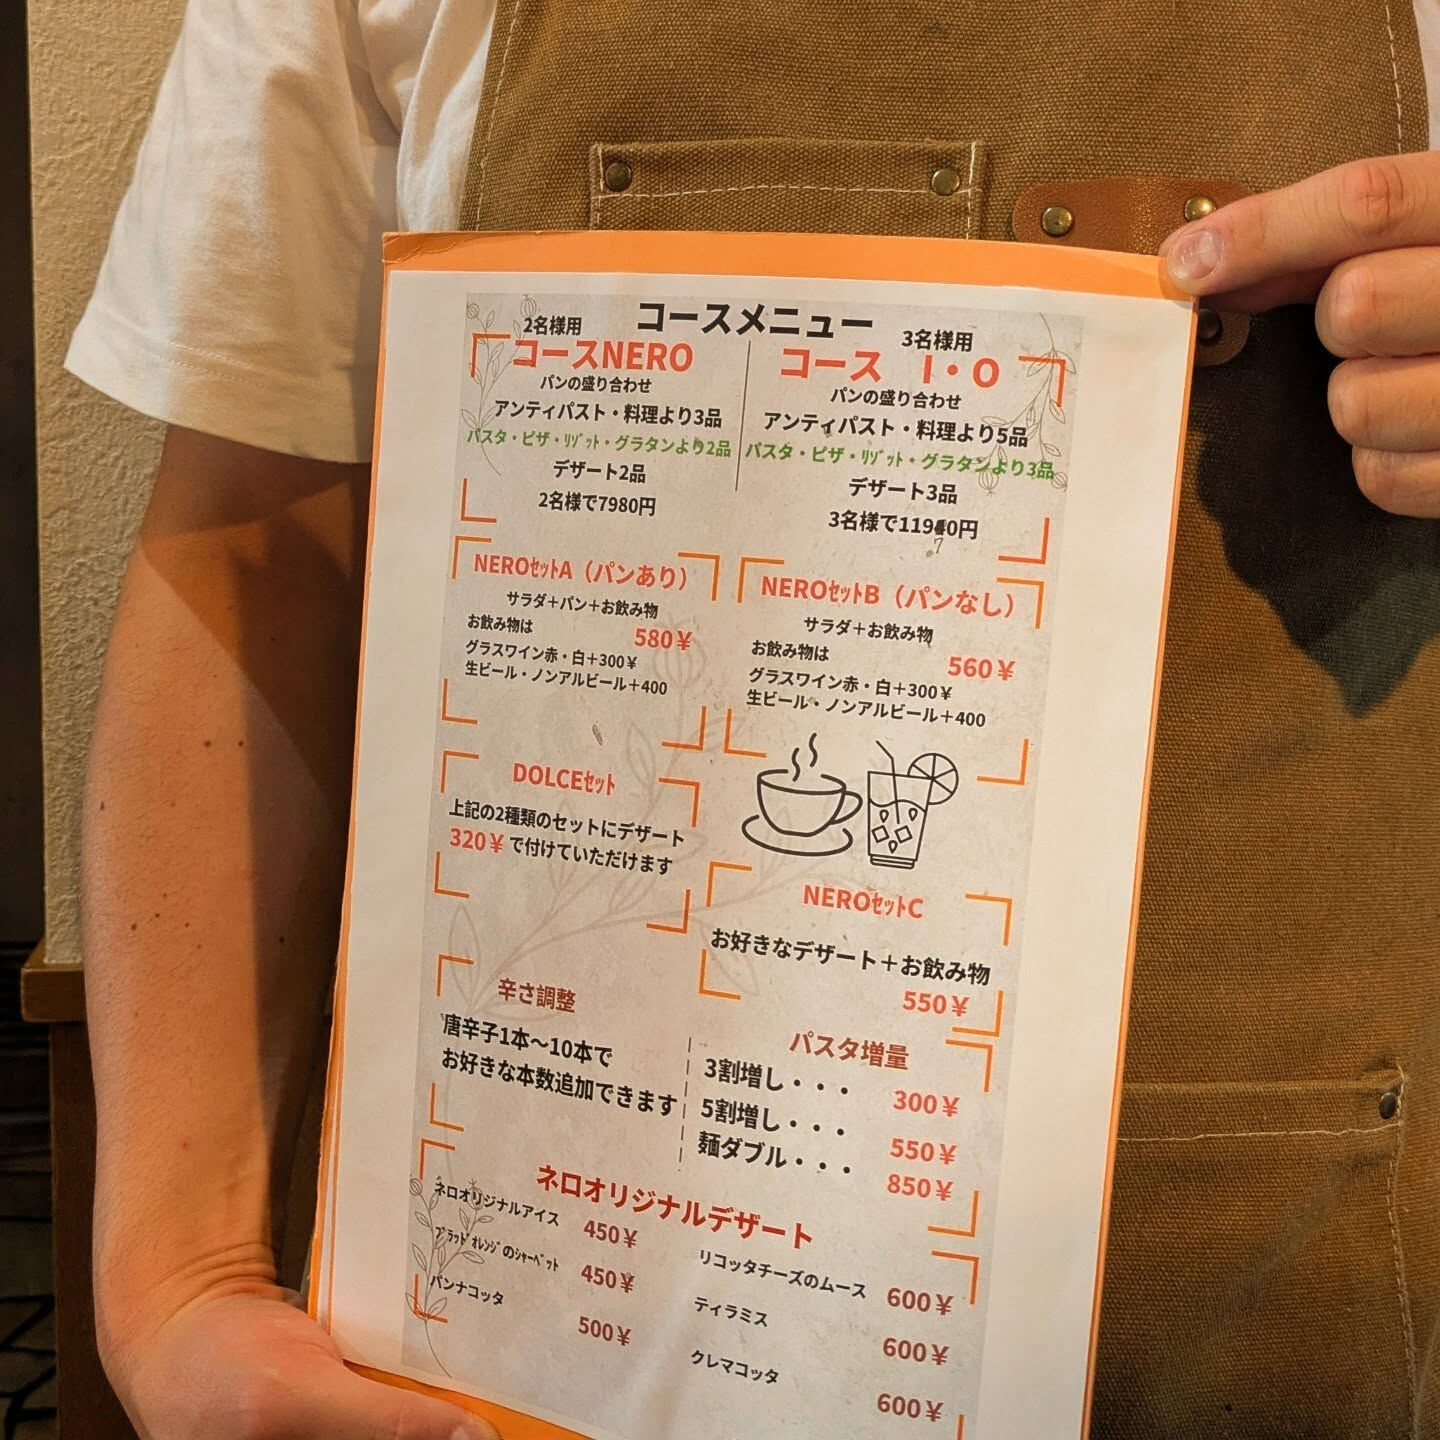 コースメニュー
2名様用
コースNERO
パンの盛り合わせ
アンティパスト・料理より3品
パスタ・ピザ・ﾘｿﾞｯﾄ・グラタンより2品
デザート2品
2名様で7980円
3名様用
コース I・O
パンの盛り合わせ
アンティパスト・料理より5品
パスタ・ピザ・ﾘｿﾞｯﾄ・グラタンより3品
デザート3品
3名様で11940円
7
NEROｾｯﾄA（パンあり）
サラダ＋パン＋お飲み物
580￥
お飲み物は
グラスワイン赤・白＋300￥
生ビール・ノンアルビール＋400
NEROｾｯﾄB（パンなし）
サラダ＋お飲み物
560￥
お飲み物は
グラスワイン赤・白＋300￥
生ビール・ノンアルビール＋400
DOLCEｾｯﾄ
上記の2種類のセットにデザート
320￥で付けていただけます
NEROｾｯﾄC
お好きなデザート＋お飲み物
550￥
辛さ調整
唐辛子1本〜10本で
お好きな本数追加できます
パスタ増量
3割増し・・・ 300￥
5割増し・・・ 550￥
麺ダブル・・・ 850￥
ネロオリジナルデザート
ネロオリジナルアイス 450￥
ﾌﾞﾗｯﾄﾞｵﾚﾝｼﾞのｼｬｰﾍﾞｯﾄ 450￥
パンナコッタ 500￥
リコッタチーズのムース 600￥
ティラミス 600￥
クレマコッタ 600￥